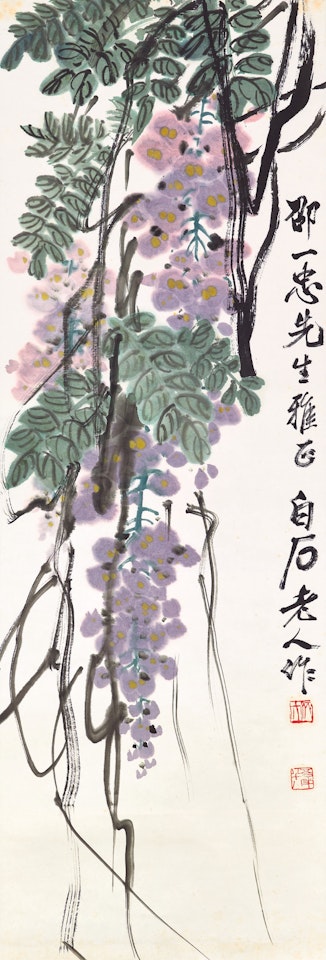 邵一忠先生雅正 白石老人作